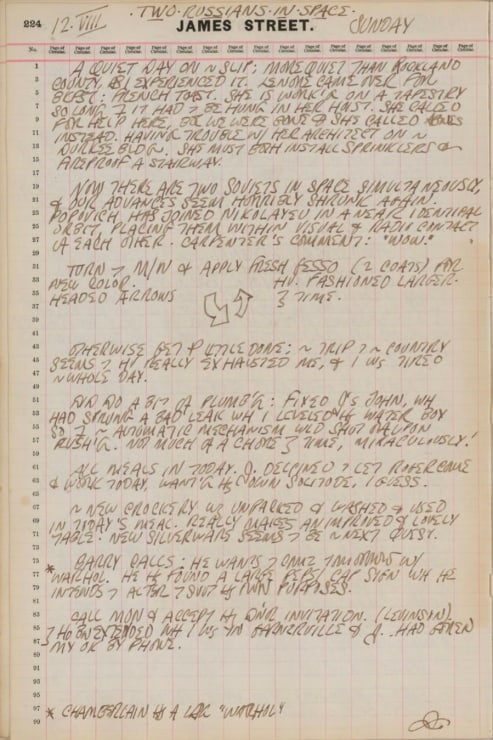 · TWO · RUSSIANS · IN · SPACE ·
224 12. VIII JAMES STREET. SUNDAY
A QUIET DAY ON ~ SLIP; MORE QUIET THAN ROCKLAND
COUNTY AS I EXPERIENCED IT. LENORE CAME OVER FOR
BKFST: FRENCH TOAST. SHE IS WORK'G ON A TAPESTRY
SO LONG IT HAD TO BE HUNG IN HER HOIST. SHE CALLED
FOR HELP HERE, BUT WE WERE GONE & SHE CALLED
INSTEAD. HAVING TROUBLE W/ HER ARCHITECT ON ~
BLDG. SHE MUST BOTH INSTALL SPRINKLERS &
FIREPROOF A STAIRWAY.
NOW THERE ARE TWO SOVIETS IN SPACE SIMULTANEOUSLY,
& OUR ADVANCES SEEM HORRIBLY SHRUNK AGAIN.
POPOVICH HAS JOINED NIKOLAYEV IN A NEAR IDENTICAL
ORBIT, PLACING THEM WITHIN VISUAL & RADIO CONTACT
OF EACH OTHER. CARPENTER'S COMMENT: "WOW."
TURN > M/N & APPLY FRESH GESSO (2 COATS) FOR
NEW COLOR. HV. FASHIONED LARGER-
HEADED ARROWS TIME.
OTHERWISE GET LITTLE DONE; ~ TRIP > ~ COUNTRY
SEEMS > HV REALLY EXHAUSTED ME, & I WS TIRED
~ WHOLE DAY.
DID DO A BIT OF PLUMB'G: FIXED J'S JOHN, WH
HAD SPRUNG A BAD LEAK WH I LEVELED WATER BOX
SO ~ AUTOMATIC MECHANISM WLD SHUT OFF UPON
RUSH'G. NOT MUCH OF A CHORE TIME, MIRACULOUSLY!
ALL MEALS IN TODAY. J. DECLINED > LET ROBER COME
& WORK TODAY, WANT'G HS OWN SOLITUDE, I GUESS.
~ NEW CROCKERY WS UNPACKED & WASHED & USED
IN TODAY'S MEAL. REALLY MAKES AN IMPROVED & LOVELY
TABLE. NEW SILVERWARE SEEMS > BE ~ NEXT QUEST.
* BARRY CALLS: HE WANTS > COME TOMORROW W/
WARHOL. HE HS FOUND A LARGE PEPSI CAP SIGN WH HE
INTENDS > ALTER > SUIT HS OWN PURPOSES.
CALL MON & ACCEPT HS DINR INVITATION. (LEVINSON)
HD BN EXTENDED WH I WS IN GARNERVILLE & J. HAD
MY OK BY PHONE.
* CHAMBERLAIN IS A "WARHOL"